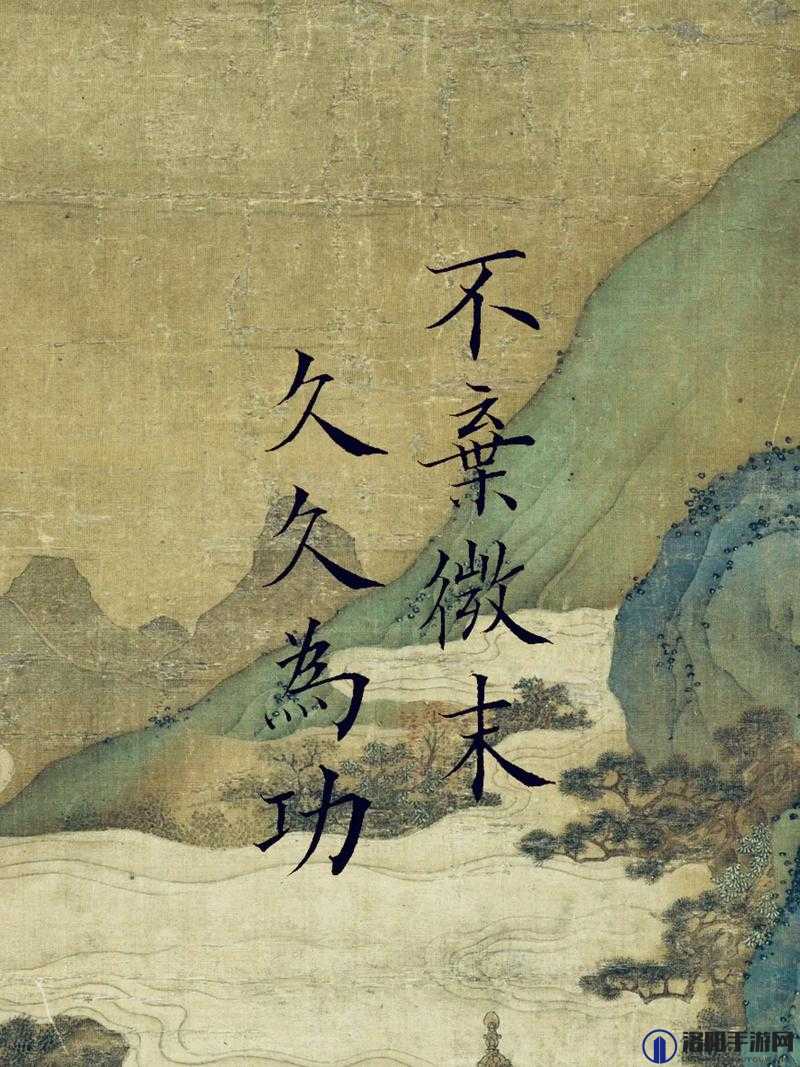 不棄微末
久久為功
洛阳手游网